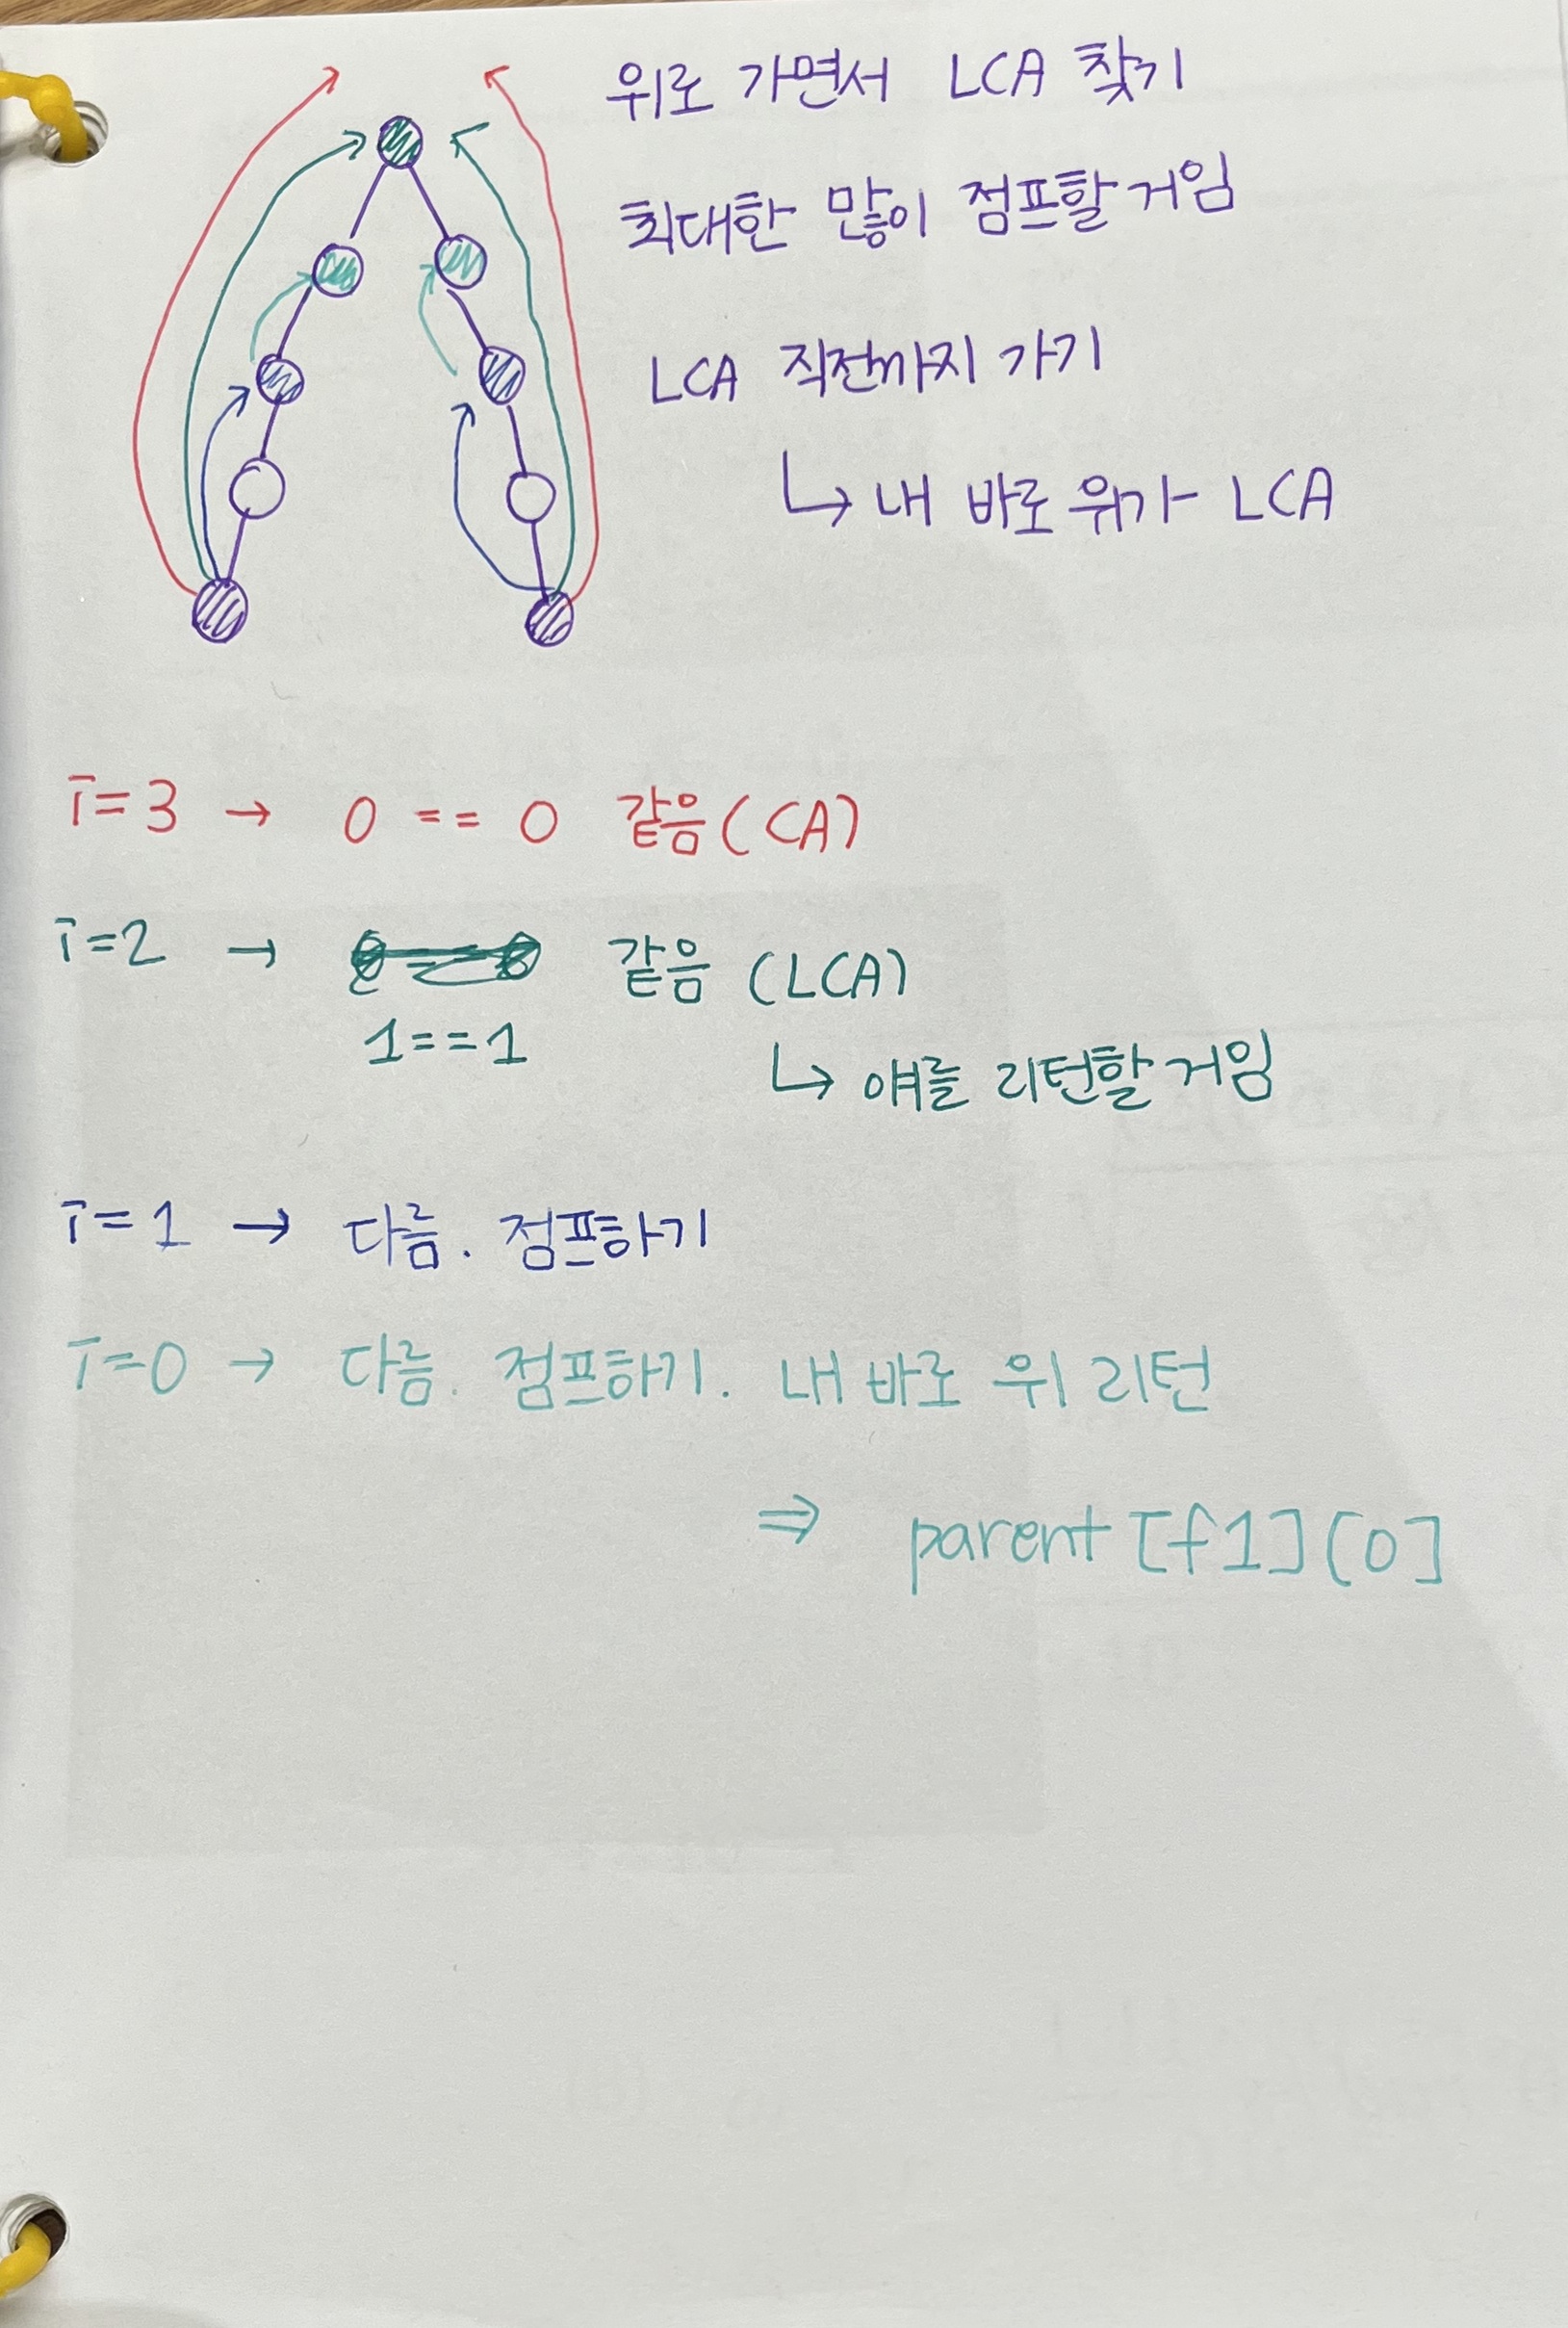 위로 가면서 LCA 찾기
최대한 많이 점프할거임
LCA 직전까지 가기
↳ 내 바로 위가 LCA
i=3 → 0 == 0 같음(CA)
i=2 → 같음 (LCA)
1==1
↳ 얘를 리턴할거임
i=1 → 다름. 점프하기
i=0 → 다름. 점프하기. 내 바로 위 리턴
⇒ parent[f1][0]